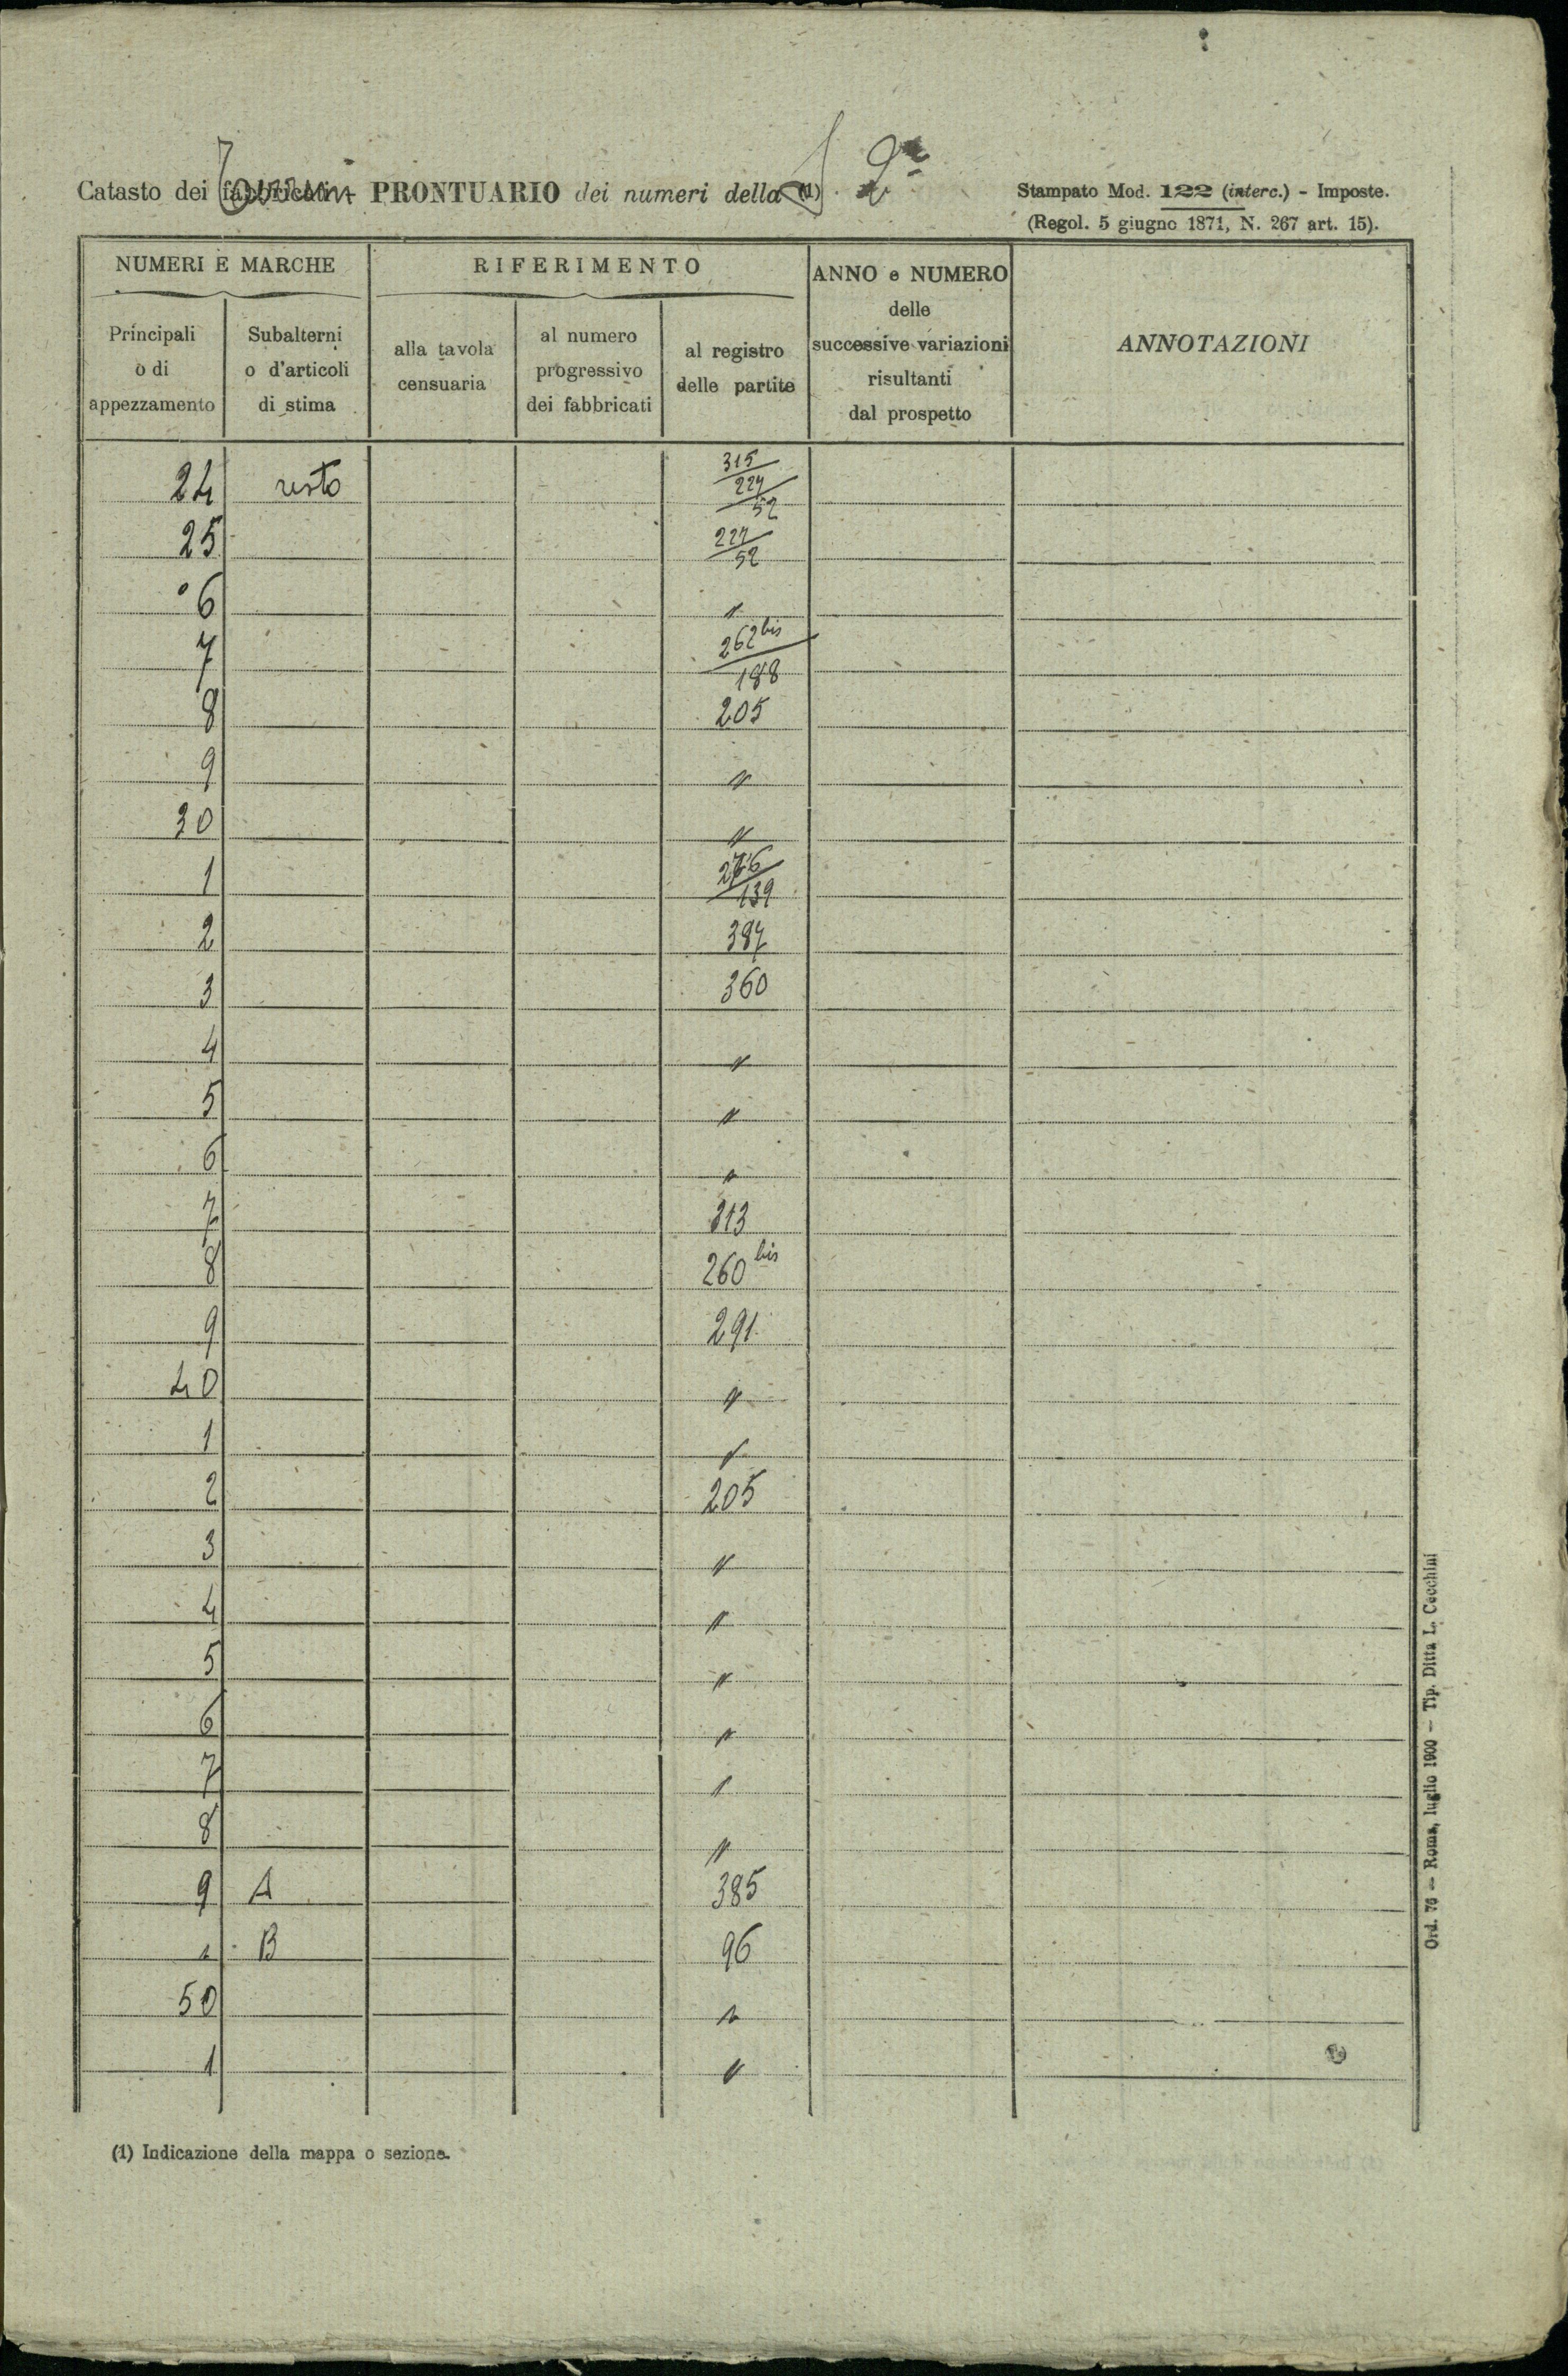 Catasto dei fabbricati Terreni PRONTUARIO dei numeri della (1) S. 2ª
Stampato Mod. 122 (interc.) - Imposte.
(Regol. 5 giugno 1871, N. 267 art. 15).
NUMERI E MARCHE
RIFERIMENTO
ANNO e NUMERO
delle
successive variazioni
risultanti
dal prospetto
ANNOTAZIONI
Principali
o di
appezzamento
Subalterni
o d'articoli
di stima
alla tavola
censuaria
al numero
progressivo
dei fabbricati
al registro
delle partite
24 resto 315/227/52
25 227/52
6 "
7 262 bis/188
8 205
9 "
30 "
1 276/139
2 387
3 360
4 "
5 "
6 "
7 313
8 260 bis
9 291
40 "
1 "
2 205
3 "
4 "
5 "
6 "
7 "
8 "
9 A 385
" B 96
50 "
1 "
(1) Indicazione della mappa o sezione.
Ord. 76 — Roma, luglio 1900 — Tip. Ditta L. Cecchini